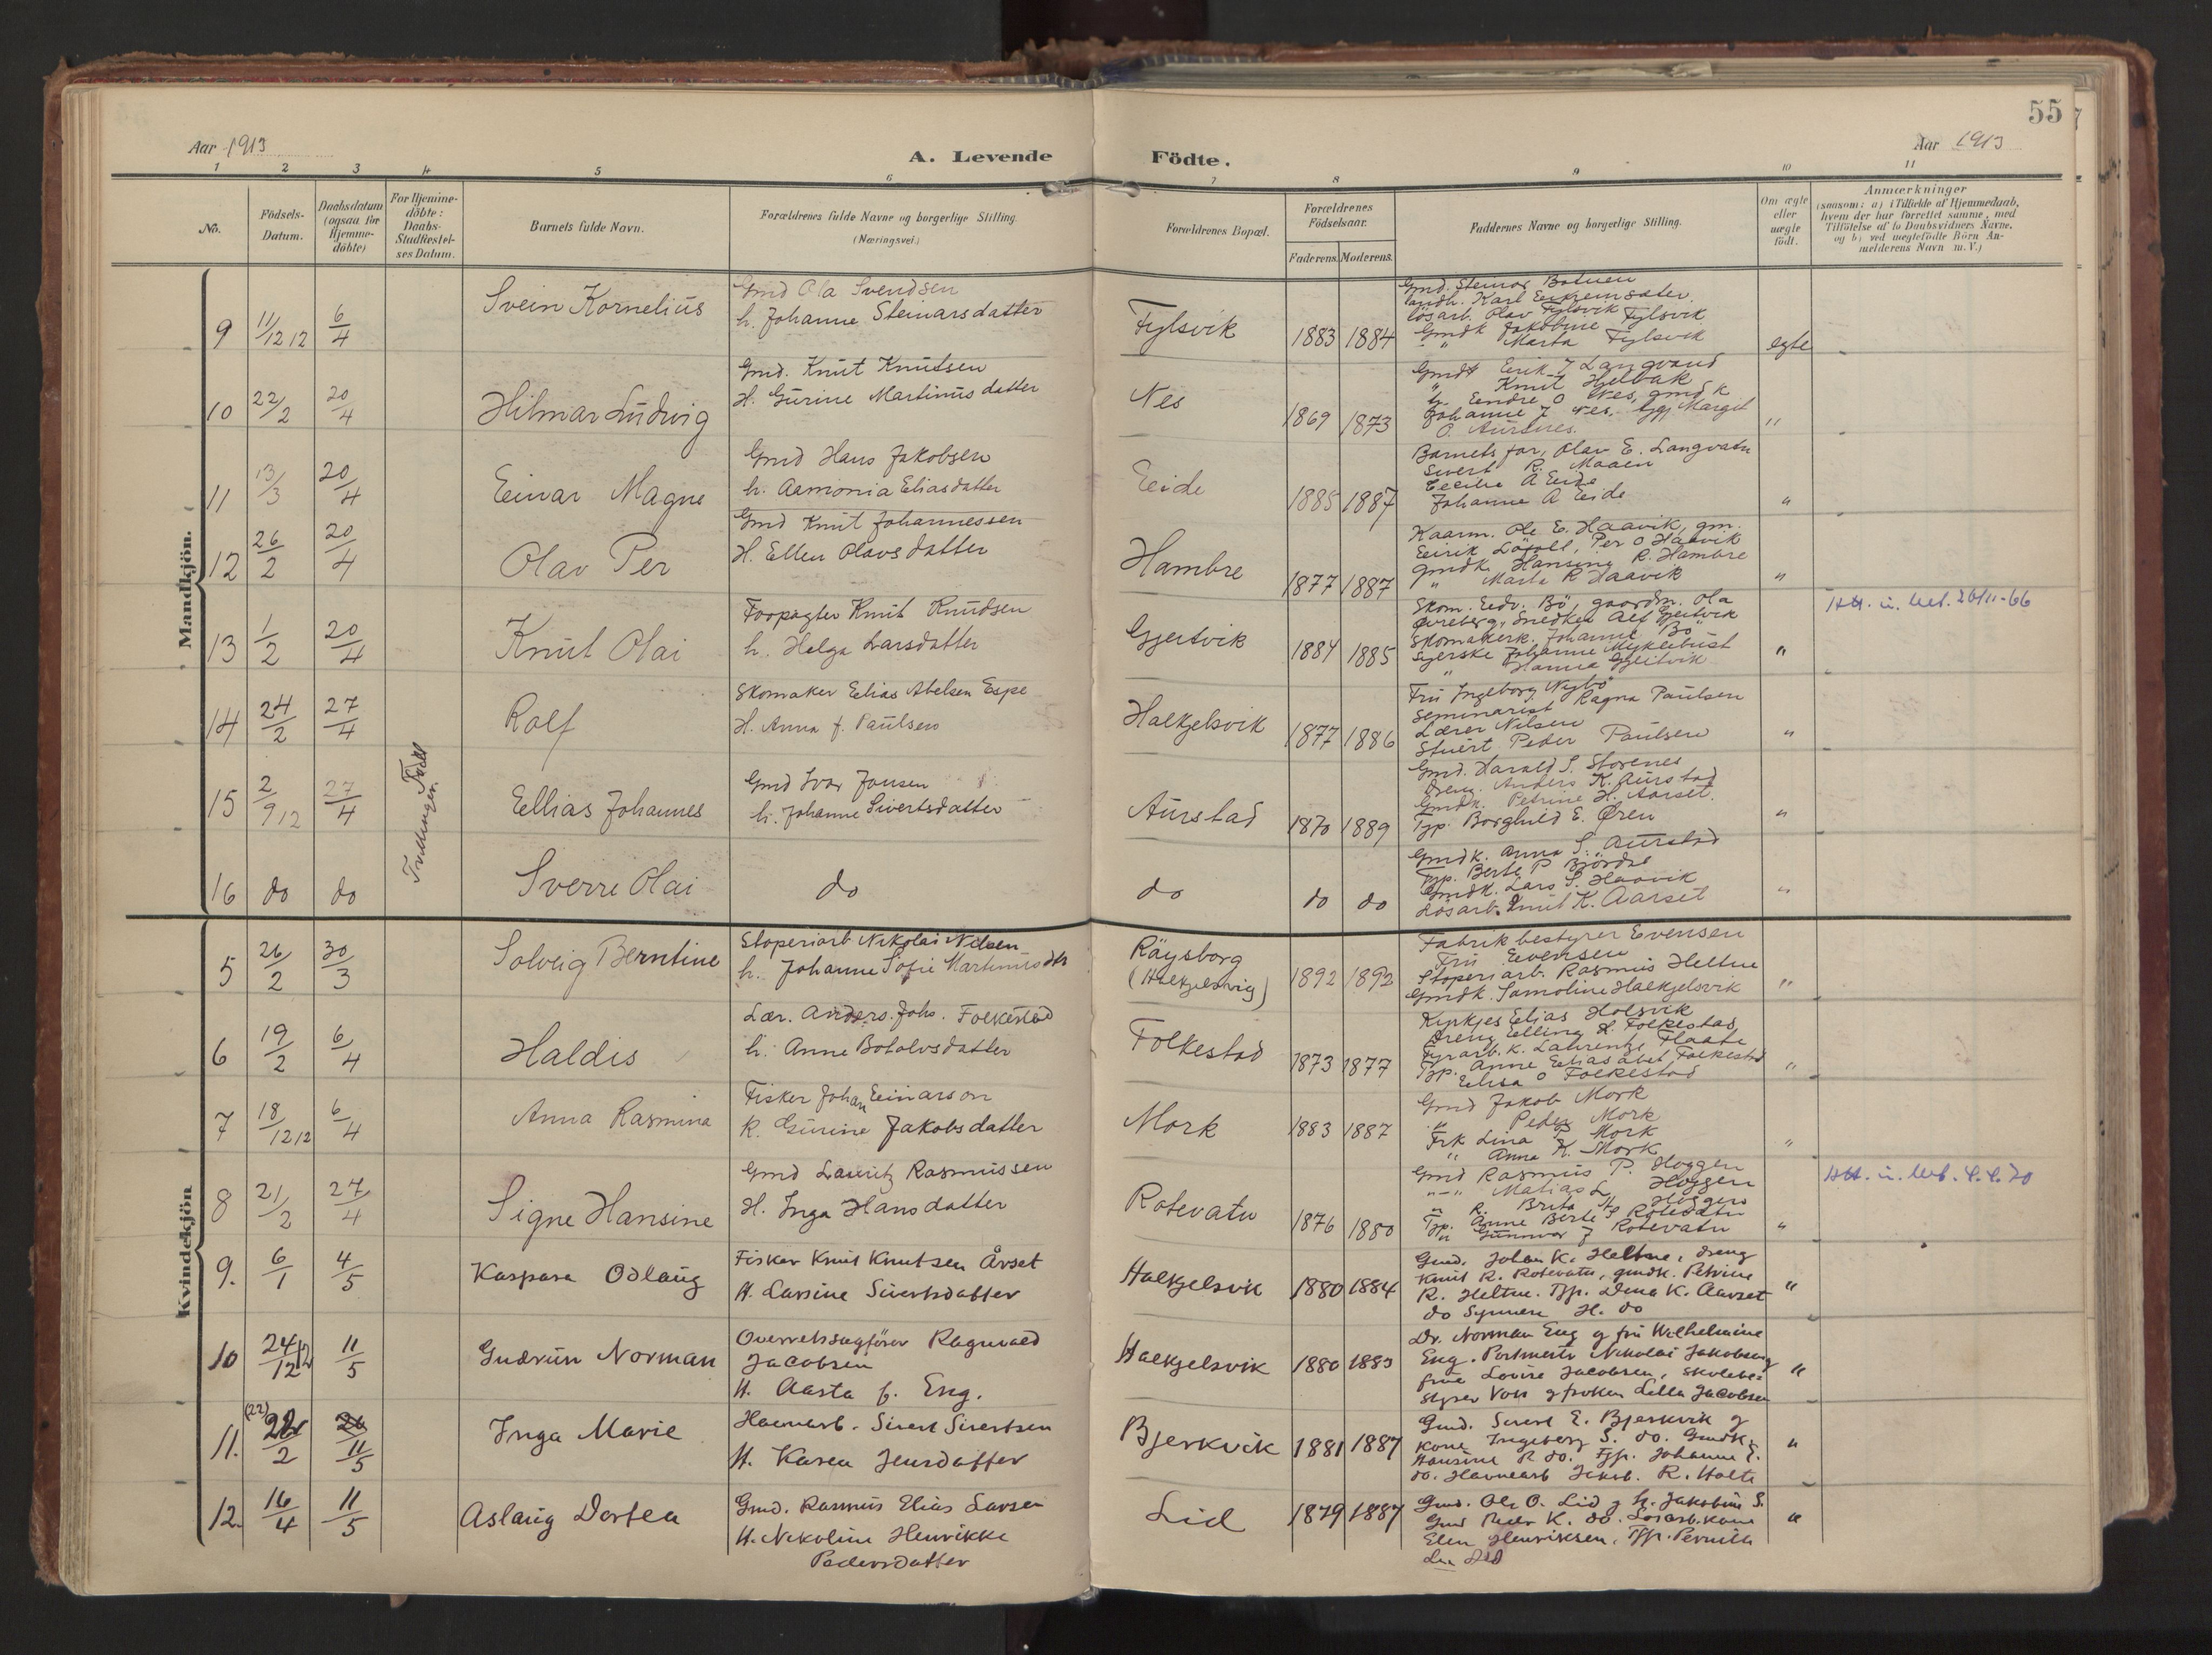 55
Aar 1913
A. Levende
Födte.
Aar 1913
1 2 3 4 5 6 7 8 9 10 11
No.
Födsels-
Datum.
Daabsdatum
(ogsaa for
Hjemme-
döbte)
For Hjemme-
döbte:
Daabs-
Stadfæstel-
ses Datum.
Barnets fulde Navn.
Forældrenes fulde Navne og borgerlige Stilling.
(Næringsvei.)
Forældrenes Bopæl.
Forældrenes
Födselsaar.
Faderens. Moderens.
Faddernes Navne og borgerlige Stilling.
Om ægte
eller
uægte
födt.
Anmærkninger
(saasom: a) i Tilfælde af Hjemmedaab,
hvem der har forrettet samme, med
Tilföielse af to Daabsvidners Navne,
og b) ved uægtefödte Börn An-
melderens Navn m. V.)
Mandkjön.
9 11/12 12 6/4 Svein Kornelius
Gmd Ola Svendsen
h. Johanne Steinarsdatter
Fylsvik 1883 1884
Gmd. Steinar Botnen
landh. Karl
lösarb. Olav Fylsvik
Gmdk Jakobine Fylsvik
" Marta Fylsvik
egte
10 22/2 20/4 Hilmar Ludvig
Gmd. Knut Knutsen
H. Gurine Martinusdatter
Nes 1869 1873
Eirik J Langvand
" Knut
Eendre O Nes, gmdk
Johanne J Nes, Margit
O. Aursnes
"
11 13/3 20/4 Eeinar Magne
Gmd Hans Jakobsen
h. Aamonia Eliasdatter
Eeide 1885 1887
Barnets far, Olav E. Langvatn
Sivert R. Maaen
Cecilie A Eeide
Johanne A Eeide
"
12 26/2 20/4 Olav Per
Gmd Knut Johannessen
H. Ellen Olavsdatter
Hambre 1877 1887
Kaarm. Ole E. Haavik, gm.
Eeirik Löfoll, Per O Haavik
gmdk. Hansine R. Hambre
" Marta R Haavik
"
13 1/2 20/4 Knut Olai
Forpagter Knut Knudsen
h. Helga Larsdatter
Gjeitvik 1884 1885
Skom. Eedv. Bö, gaardm. Ola
Övreberg, Snedker Alf Gjeitvik
Skomakerk. Johanne Bö
Syerske Johanne Myklebust
" Hanna Gjeitvik
"
26/11-66
14 24/2 27/4 Rolf
Skomaker Eelias Abelsen Espe
H. Anna f. Paulsen
Halkjelsvik 1877 1886
Fru Ingeborg Nybö
Seminarist Ragna Paulsen
Lærer Nilsen
Stuert Peder Paulsen
"
Tvillinger. Födt
15 2/9 12 27/4 Eellias Johannes
Gmd Ivar Jonsen
h. Johanne Sivertsdatter
Aurstad 1870 1889
Gmd. Harald S. Storenes
Dreng. Anders K. Aurstad
Gmdk. Petrine H. Aarset.
Tjp. Borghild E. Ören
"
16 do do Sverre Olai
do
do do do
Gmdk. Anna S. Aurstad
Tjp. Berte P Björdal
Gmdk. Lars S. Haavik
Lösarb. Knut K. Aarset
"
Kvindekjön
5 26/2 30/3 Solveig Berntine
Stoperiarb Nikolai Nilsen
h. Johanne Sofie Martinusdtr
Räysborg
(Halkjelsvig)
1892 1892
Fabrikbestyrer Evensen
Fru Eevensen
Stoperiarb. Rasmus Heltne
Gmdk. Samoline Halkjelsvik
"
6 19/2 6/4 Haldis
Lær. Anders. Johs. Folkestad
h. Anne Botolvsdatter
Folkestad 1873 1877
Kyrkjes Elias Holsvik
Dreng Eelling H. Folkestad
Fyrarb. K. Laurentze Flaate
Tjp. Anne Eeliasabet Folkestad
Eelisa O Folkestad
"
7 18/12 12 6/4 Anna Rasmina
Fisker Johan Eeinarson
k. Gurine Jakobsdatter
Mork 1883 1887
Gmd Jakob Mork
" Peder Mork
Frk Lina P Mork
" Anna K. Mork
"
8 21/2 27/4 Signe Hansine
Gmd Lauritz Rasmussen
H. Inga Hansdatter
Rotevatn 1876 1880
Gmd Rasmus P. Hoggen
"-" Matias L Hoggen
" k. Brita H Hoggen
Tjp. Anne Berte S Rotevatn
" Gunnvor J Rotevatn
"
4.4.70
9. 6/1 4/5 Kaspara Odlaug
Fisker Knut Knutsen Årset
H. Larsine Sivertsdatter
Halkjelsvik 1880 1884
Gmd. Johan K. Heltne, dreng
Knut R. Rotevatn, gmdk. Petrine
R. Heltne. Tjp. Dena K. Aarset
do Synnere H. do
"
10 24/12 12 11/5 Gudrun Norman
Overretssagförer Ragnvald
Jacobsen
H. Aasta f. Eng.
Halkjelsvik 1880 1883
Dr. Norman Eng og fru Wilhelmine
Eng. Postmester Nikolai Jakobsen og
frue Lovise Jacobsen, skolebe-
styrer Voss og fröken Lilla Jacobsen
"
11. (22) 22/2 11/5 Inga Marie
Havnearb. Sivert Sivertsen
H. Karen Jensdatter
Bjerkvik 1881 1887
Gmd. Sivert E. Bjerkvik og
kone Ingeborg S. do. Gmdk.
Hansine R do. Tjp. Johanne E.
do. Havnearb Jakob. R. Holte
"
12. 16/4 11/5 Aslaug Dortea
Gmd. Rasmus Elias Larsen
H. Nikoline Henrikke
Pedersdatter
Lid 1879 1887
Gmd. Ole O. Lid og h. Jakobine S.
Gmd Peder K. do. Lösarb.kone
Elen Henriksen, Tjp. Pernille
Lid
"